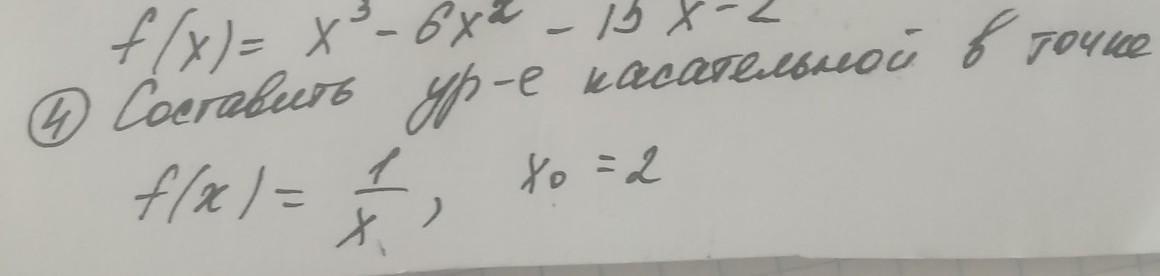 f(x) = x³ - 6x² - 15x - 2
④ Составить ур-е касательной в точке
f(x) = 1/x, x₀ = 2